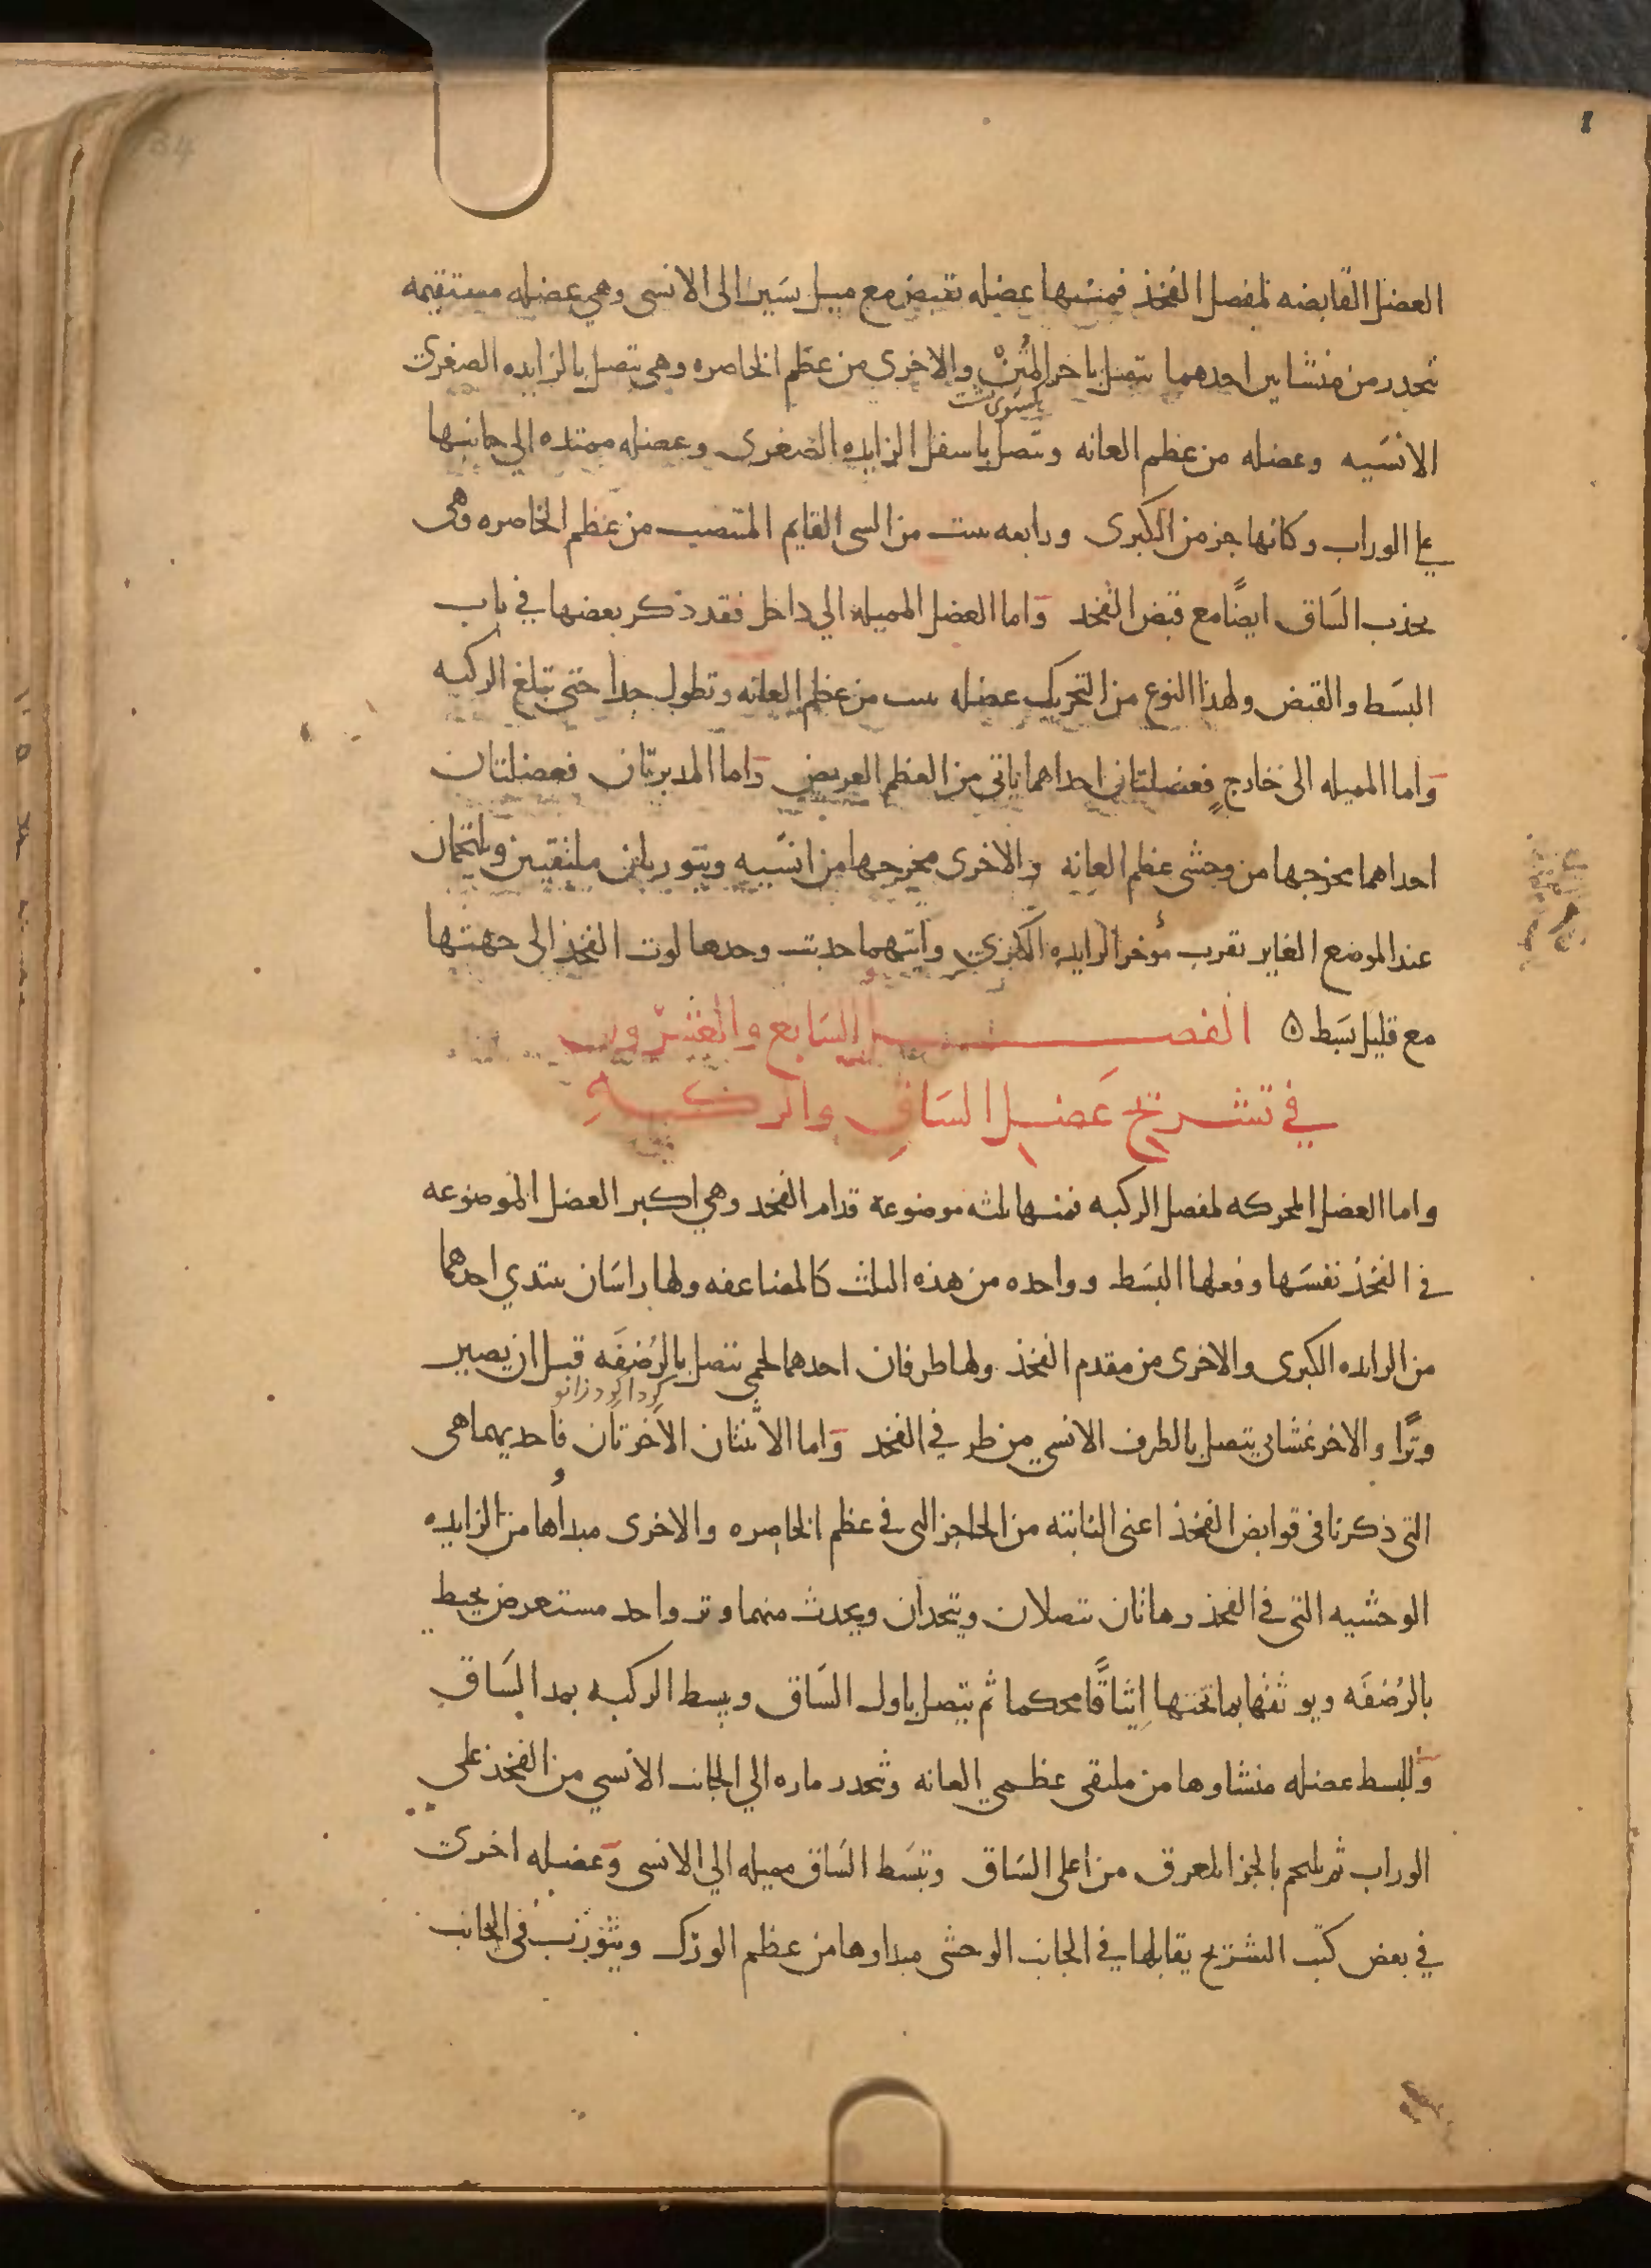 العضل القابضه لمفصل الفخذ فمنها عضله تقبض مع ميل يسير الى الانسى وهي عضله مستقيمه
تنحدر من منشاين احدهما يتصل باخر المتن والاخرى من عظم الخاصره وهى تتصل بالزايده الصغرى
الانسيه وعضله من عظم العانه وتتصل باسفل الزايده الصغرى وعضله ممتده الي جانبها
علي الوراب وكانها جز من الكبرى ورابعه تنبت من الشى القايم المنتصب من عظم الخاصره وهى
يجذب الساق ايضًا مع قبض الفخذ واما العضل المميله الي داخل فقد ذكر بعضها في باب
البسط والقبض ولهذا النوع من التحريك عضله تنبت من عظم العانه وتطول جدا حتى تبلغ الركبه
واما المميله الى خارجٍ فعضلتان احداهما تاتى من العظم العريض واما المديرتان فعضلتان
احداهما مخرجها من وحشى عظم العانه والاخرى مخرجها من انسيه ويتوربان ملتقيين ويلتحمان
عند الموضع الغاير بقرب مؤخر الزايده الكبرى وايتهما جذبت وحدها لوت الفخذ الى جهتها
مع قليل بسط ه الفصل السابع والعشرون
في تشريح عَضل السَاقِ والركبهِ
واما العضل المحركه لمفصل الركبه فمنها ثلثه موضوعة قدام الفخد وهي اكبر العضل الموضوعه
في الفخذ نفسَها وفعلها البسَط وواحده من هذه الثلث كالمضاعفه ولها راسَان يبتدي احدهما
من الزايده الكبرى والاخرى من مقدم الفخذ ولها طرفان احدهما لحمى يتصل بالرُضفَه قبل ان يصير
گردا گرد زانو
وترًا والاخر غشايى يتصل بالطرف الانسي من طرفي الفخد واما الاثنتان الاخرتان فاحديهما هى
التى ذكرنا فى قوابض الفخذ اعنى النابته من الحاجز التى في عظم الخاصره والاخرى مبدأها من الزايده
الوحشيه التى في الفخذ وهاتان تتصلان وتتحدان ويحدث منهما وتر واحد مستعرض يحيط
بالرُضفَه ويوثقها بما تحتها اِيثاقًا محكما ثم يتصل باول السَاق ويبسط الركبه بمد السَاق
وللبسط عضله منشاوها من ملتقى عظمي العانه وتنحدر ماره الي الجانب الانسي من الفخذ على
الوراب ثم يلتحم بالجز المعرق من اعلى السَاق وتبسَط السَاق مميله الي الانسى وعضله اخرى
في بعض كتب التشريح يقابلها في الجانب الوحشى مبداوها من عظم الورك ويتورب فى الجانب